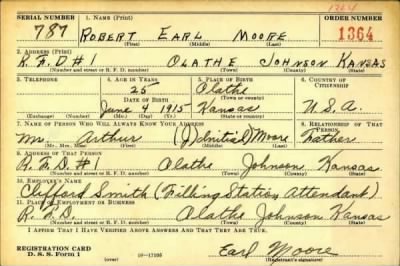 1364
SERIAL NUMBER 1. NAME (Print) ORDER NUMBER
787 ROBERT EARL MOORE 1364
(First) (Middle) (Last)
2. ADDRESS (Print)
R.F.D #1 OLATHE JOHNSON KANSAS
(Number and street or R. F. D. number) (Town) (County) (State)
3. TELEPHONE 4. AGE IN YEARS 5. PLACE OF BIRTH 6. COUNTRY OF CITIZENSHIP
25 Olathe
DATE OF BIRTH (Town or county)
June 4 1915 Kansas U.S.A.
(Exchange) (Number) (Mo.) (Day) (Yr.) (State or country)
7. NAME OF PERSON WHO WILL ALWAYS KNOW YOUR ADDRESS 8. RELATIONSHIP OF THAT PERSON
Mr. Arthur (J)(Initial) Moore Father
(Mr., Mrs., Miss) (First) (Middle) (Last)
9. ADDRESS OF THAT PERSON
R.F.D #1 Olathe Johnson Kansas
(Number and street or R. F. D. number) (Town) (County) (State)
10. EMPLOYER'S NAME
Clifford Smith (Filling Station Attendant)
11. PLACE OF EMPLOYMENT OR BUSINESS
R.F.D. Olathe Johnson Kansas
(Number and street or R. F. D. number) (Town) (County) (State)
I AFFIRM THAT I HAVE VERIFIED ABOVE ANSWERS AND THAT THEY ARE TRUE.
REGISTRATION CARD
D. S. S. Form 1 16—17105 Earl Moore
(Registrant's signature)